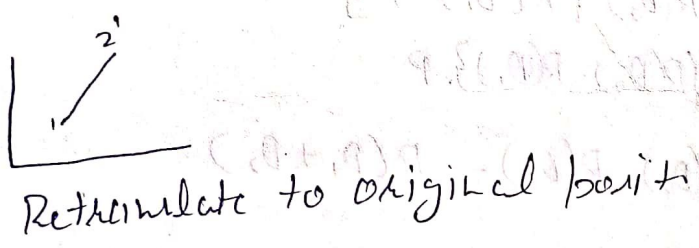 2'
1
Retranslate to original posit